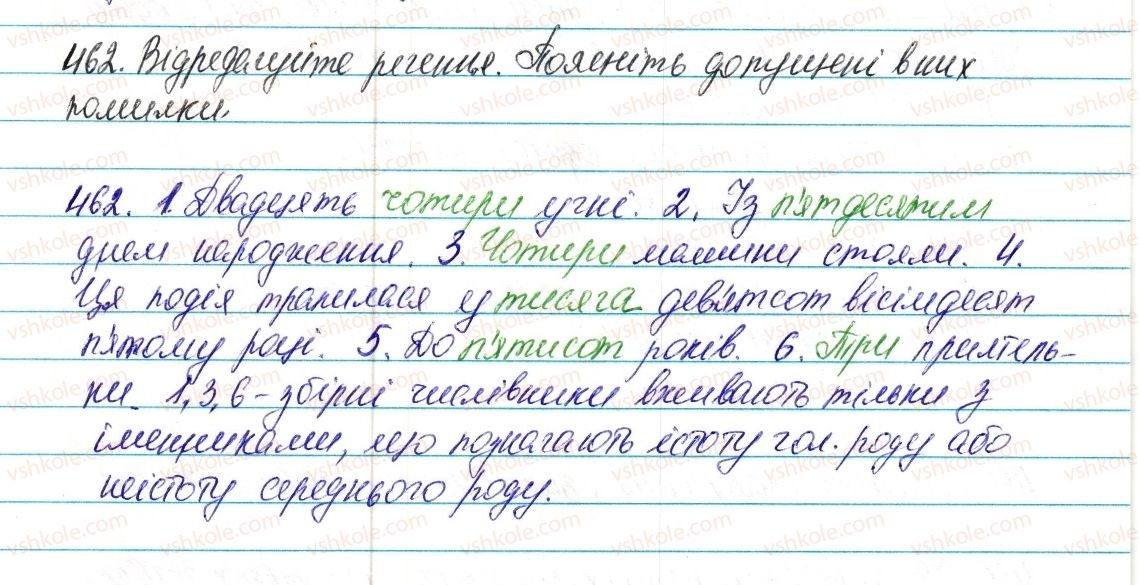 462. Відредагуйте речення. Поясніть допущені в них
помилки.
462. 1. Двадцять чотири учні. 2. Із п'ятдесятим
днем народження. 3. Чотири машини стояли. 4.
Ця подія трапилася у тисяча дев'ятсот вісімдесят
п'ятому році. 5. До п'ятисот років. 6. Три приятель-
ки. 1,3,6 – збірні числівники вживають тільки з
іменниками, що позначають істоту чол. роду або
неістоту середнього роду.